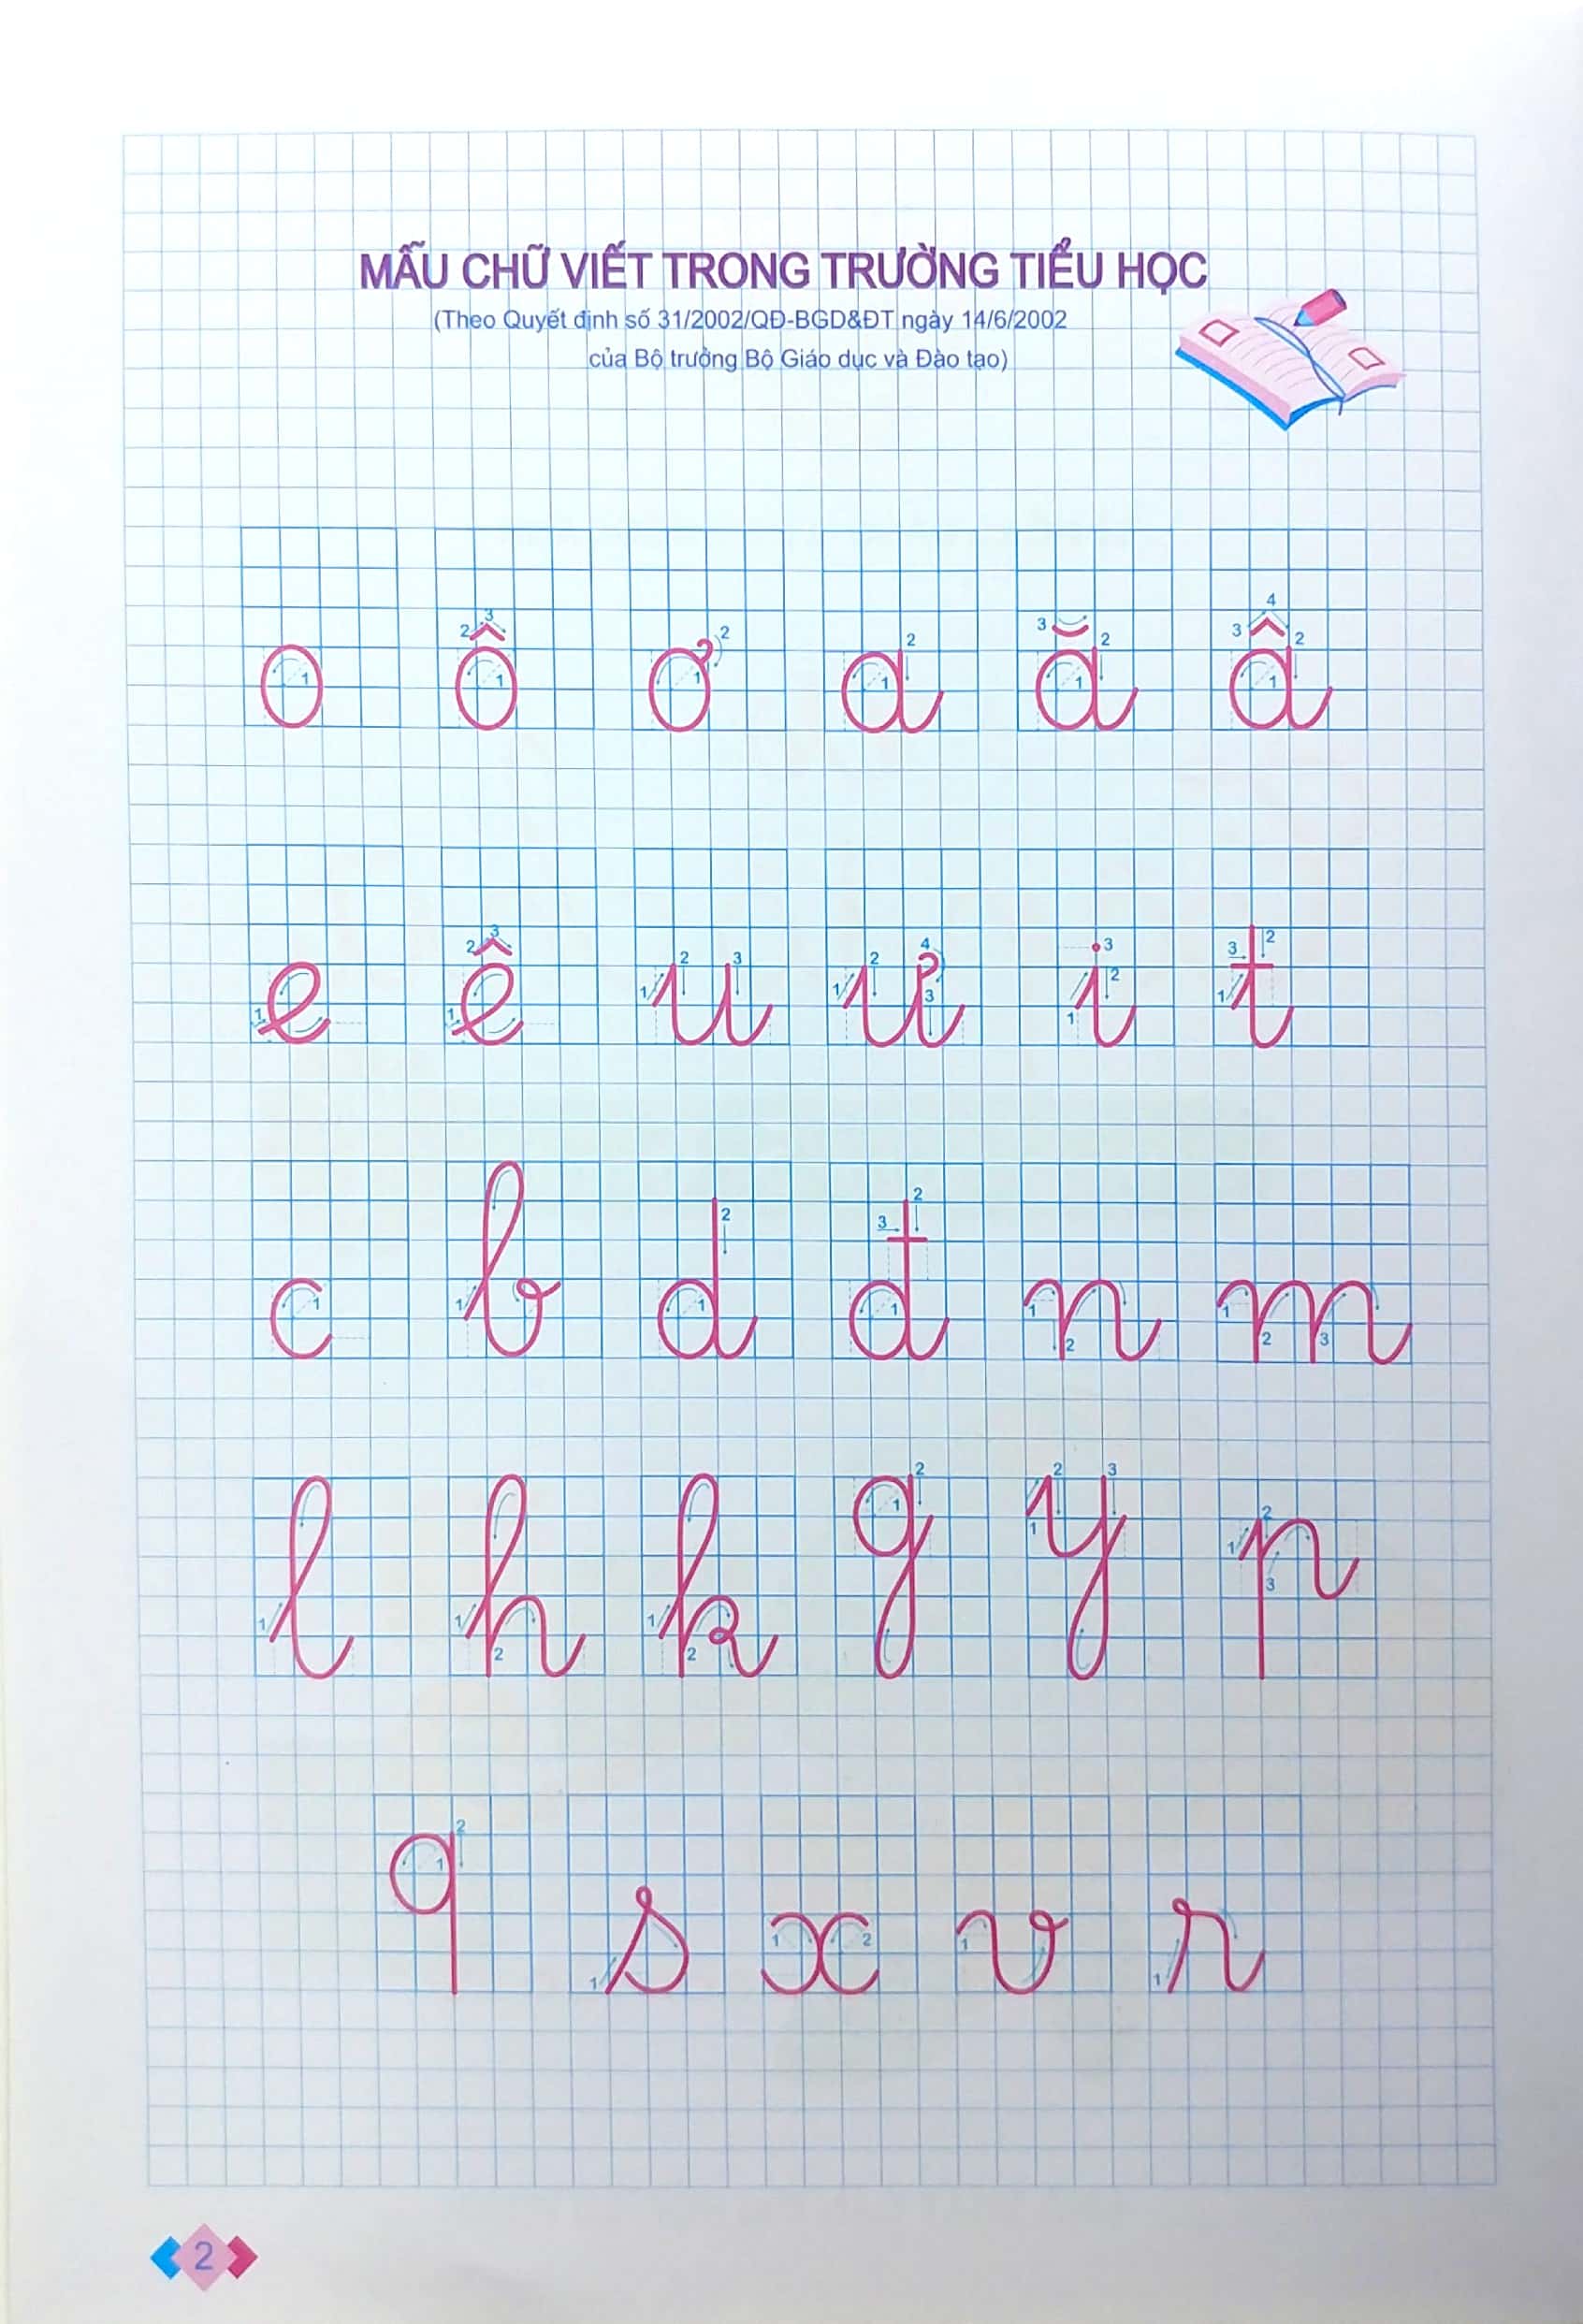 MẪU CHỮ VIẾT TRONG TRƯỜNG TIỂU HỌC
(Theo Quyết định số 31/2002/QĐ-BGD&ĐT ngày 14/6/2002
của Bộ trưởng Bộ Giáo dục và Đào tạo)
o ô ơ a ă â
e ê u ư i t
c b d đ n m
l h k g y p
q s x v r
2